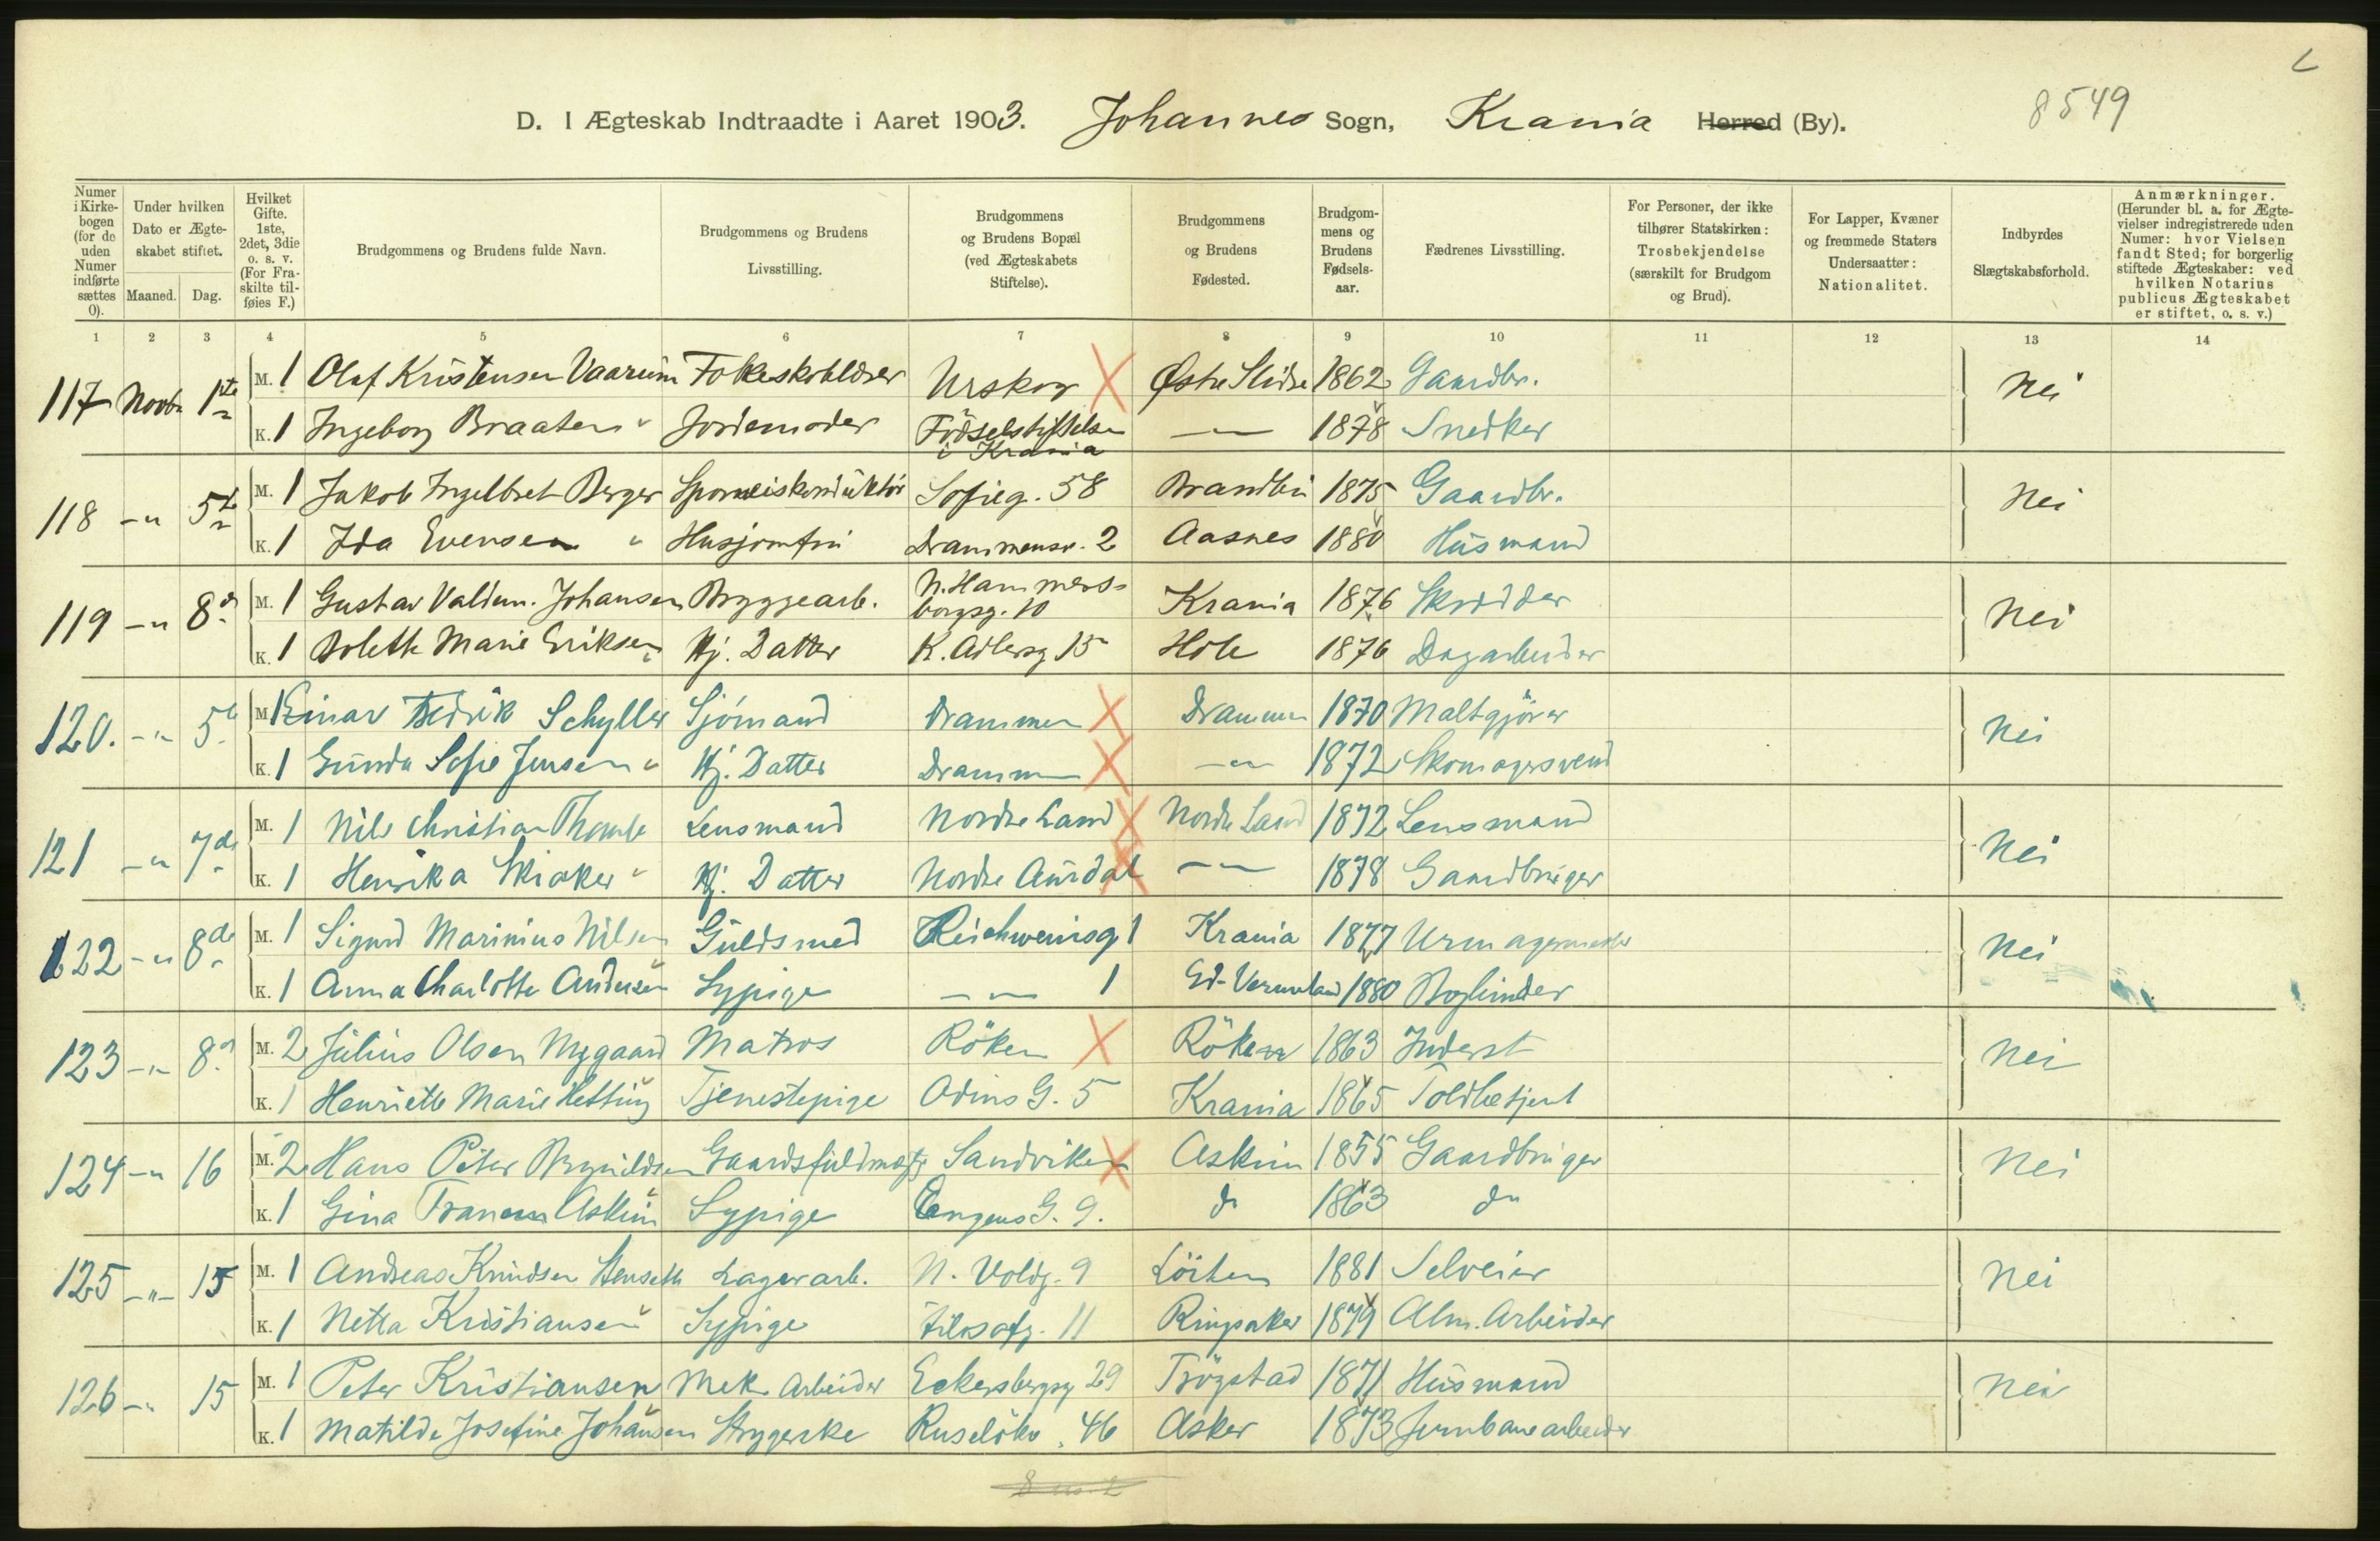 D. I Ægteskab Indtraadte i Aaret 1903. Johannes Sogn, Krania Herred (By). 8549
Numer i Kirkebogen (for de uden Numer indførte sættes 0).
Under hvilken Dato er Ægteskabet stiftet.
Maaned. Dag.
Hvilket Gifte. 1ste, 2det, 3die o. s. v. (For Fraskilte tilføies F.)
Brudgommens og Brudens fulde Navn.
Brudgommens og Brudens Livsstilling.
Brudgommens og Brudens Bopæl (ved Ægteskabets Stiftelse).
Brudgommens og Brudens Fødested.
Brudgommens og Brudens Fødselsaar.
Fædrenes Livsstilling.
For Personer, der ikke tilhører Statskirken: Trosbekjendelse (særskilt for Brudgom og Brud).
For Lapper, Kvæner og fremmede Staters Undersaatter: Nationalitet.
Indbyrdes Slægtskabsforhold.
Anmærkninger. (Herunder bl. a. for Ægtevielser indregistrerede uden Numer: hvor Vielsen fandt Sted; for borgerlig stiftede Ægteskaber: ved hvilken Notarius publicus Ægteskabet er stiftet, o. s. v.)
1 2 3 4 5 6 7 8 9 10 11 12 13 14
117 Novbr 1ste M. 1 Olaf Kristensen Vaarum Folkeskolelærer Urskog Østre Slidre 1862 Gaardbr. Nei
K. 1 Ingeborg Braaten " Jordemoder Fødselsstiftelsen i Krania — 1878 Snedker
118 -"- 5te M. 1 Jakob Ingelbret Berger Sporveiskonduktør Sofieg. 58 Brandbu 1875 Gaardbr. Nei
K. 1 Ida Evensen " Husjomfru Drammensv. 2 Aasnes 1880 Husmand
119 -"- 8de M. 1 Gustav Valdem. Johansen Bryggearb. N. Hammersborgsg. 10 Krania 1876 Skrædder Nei
K. 1 Dolette Marie Eriksen " Hj. Datter K. Adlersg 15 Hole 1876 Dagarbeider
120. -"- 5te M. 1 Einar Fredrik Schyller Sjömand Drammen Drammen 1870 Maltgjörer Nei
K. 1 Gunda Sofie Jensen " Hj. Datter Drammen -"- 1872 Skomagersvend
121 -"- 7de M. 1 Nils Christian Thomle Lensmand Nordre Land Nordre Land 1872 Lensmand Nei
K. 1 Henrika Skiaker " Hj. Datter Nordre Aurdal -"- 1878 Gaardbruger
122 -"- 8de M. 1 Sigurd Marinius Nilsen Guldsmed Reichweinsg. 1 Krania 1877 Urmagermester Nei
K. 1 Anna Charlotte Andersen Sypige -"- 1 Ed-Vermland 1880 Bogbinder
123 -"- 8de M. 2 Julius Olsen Nygaard Matros Röken Röken 1863 Inderst Nei
K. 1 Henriette Marie Hetting Tjenestepige Odins G. 5 Krania 1865 Toldbetjent
124 -"- 16 M. 2 Hans Peter Brynildsen Gaardsfuldmægt Sandviken Askim 1855 Gaardbruger Nei
K. 1 Gina Askim Sypige Engens G. 9. do 1863 do
125 -"- 15 M. 1 Andreas Knudsen Stenseth Lagerarb. N. Voldg. 9 Löiten 1881 Selveier Nei
K. 1 Netta Kristiansen Sypige Filosofg. 11 Ringsaker 1879 Alm. Arbeider
126 -"- 15 M. 1 Peter Kristiansen Mek. Arbeider Eckersbergsg 29 Trögstad 1871 Husmand Nei
K. 1 Matilde Josefine Johansen Strygerske Ruselökv. 46 Asker 1873 Jernbanearbeider